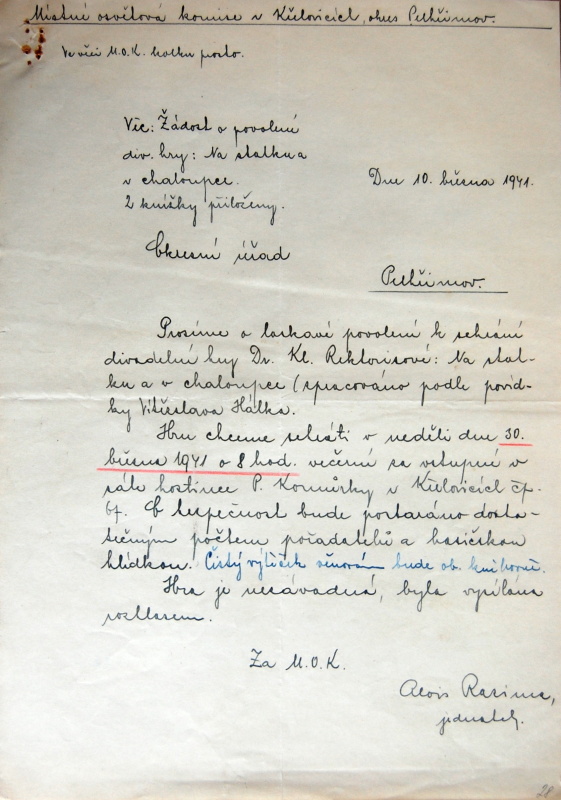 Místní osvětová komise v Křelovicích, okres Pelhřimov.
Ve věci M.O.K. kolku prosto.
Věc: Žádost o povolení
div. hry: Na statku a
v chaloupce.
2 knížky přiloženy.
Dne 10. března 1941.
Okresní úřad
Pelhřimov.
Prosíme o laskavé povolení k sehrání
divadelní hry Dr. Kl. Rektorisové: Na stat-
ku a v chaloupce (spracováno podle povíd-
ky Vítězslava Hálka.
Hru chceme sehráti v neděli dne 30.
března 1941 o 8 hod. večerní za vstupné v
sále hostince P. v Křelovicích čp.
O bezpečnost bude postaráno dosta-
tečným počtem pořadatelů a hasičskou
hlídkou. Čistý výtěžek věnován bude ob. knihovně.
Hra je nezávadná, byla vysílána
rozhlasem.
Za M.O.K.
Alois
jednatel.
28